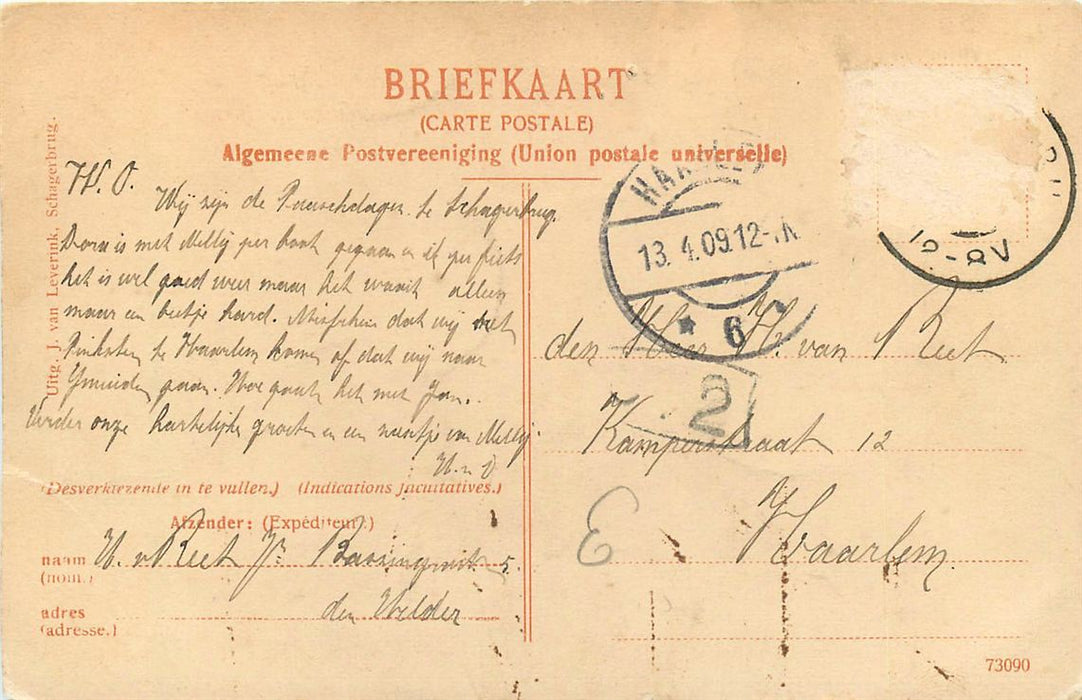 BRIEFKAART
(CARTE POSTALE)
Algemeene Postvereeniging (Union postale universelle)
Uitg. J. van Leverink, Schagerbrug.
Wij zijn de Paaschdagen te Schagerbrug.
Dora is met Melly per boot gegaan en ik per fiets
het is wel goed weer maar het waait alleen
maar een beetje hard. Misschien dat wij met
Pinksten te Haarlem komen of dat wij naar
Ymuiden gaan. Hoe gaat het met Jan.
Verder onze hartelijke groeten en een van Melly
H. en D
(Desverkiezende in te vullen.) (Indications facultatives.)
Afzender: (Expéditeur:)
naam H. v Reet Jr
(nom.)
adres den Helder
(adresse.)
13. 4.09.12-
6
2
den Heer H. van Reet
Kamperstraat 12
Haarlem.
E
12-8V
73090